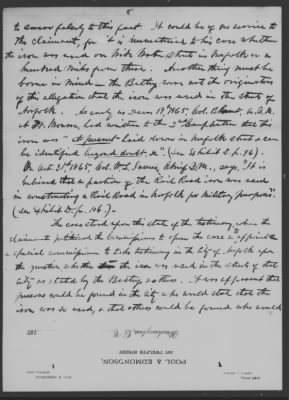 8
to swear falsely to this fact. It could be of no service to
the claimant, for it is immaterial to his case whether
the iron was used on Wide Water Streets in Norfolk or a
hundred miles from there. Another thing must be
borne in mind – the Bettey were not the originators
of this allegation that the iron was used in the streets of
Norfolk. As early as Decr 19" 1865, Col. , Q.M.
at Ft. Monroe, had written to the that this
iron was "at present laid down in Norfolk streets & can
be identified beyond doubt." (See Exhibit D p. 96).
On Oct. 31" 1865, Col. , Chief Q.M., says, "It is
believed that a portion of the Rail Road iron was used
in constructing a Rail Road in Norfolk for Military purposes".
(See Exhibit D. p. 106.)
The case stood upon this state of the testimony, when the
claimant petitioned the Commissioners to open the case & appoint
a special commissioner to take testimony in the City of Norfolk upon
the question whether the iron was used in the streets of that
City as stated by the Bettey & others. It was apparent that
persons would be found in the city who would state that the
iron was so used, & that others could be found who would
Washington, D. C. 187
POOL & EDMONDSON,
TWELFTH STREET